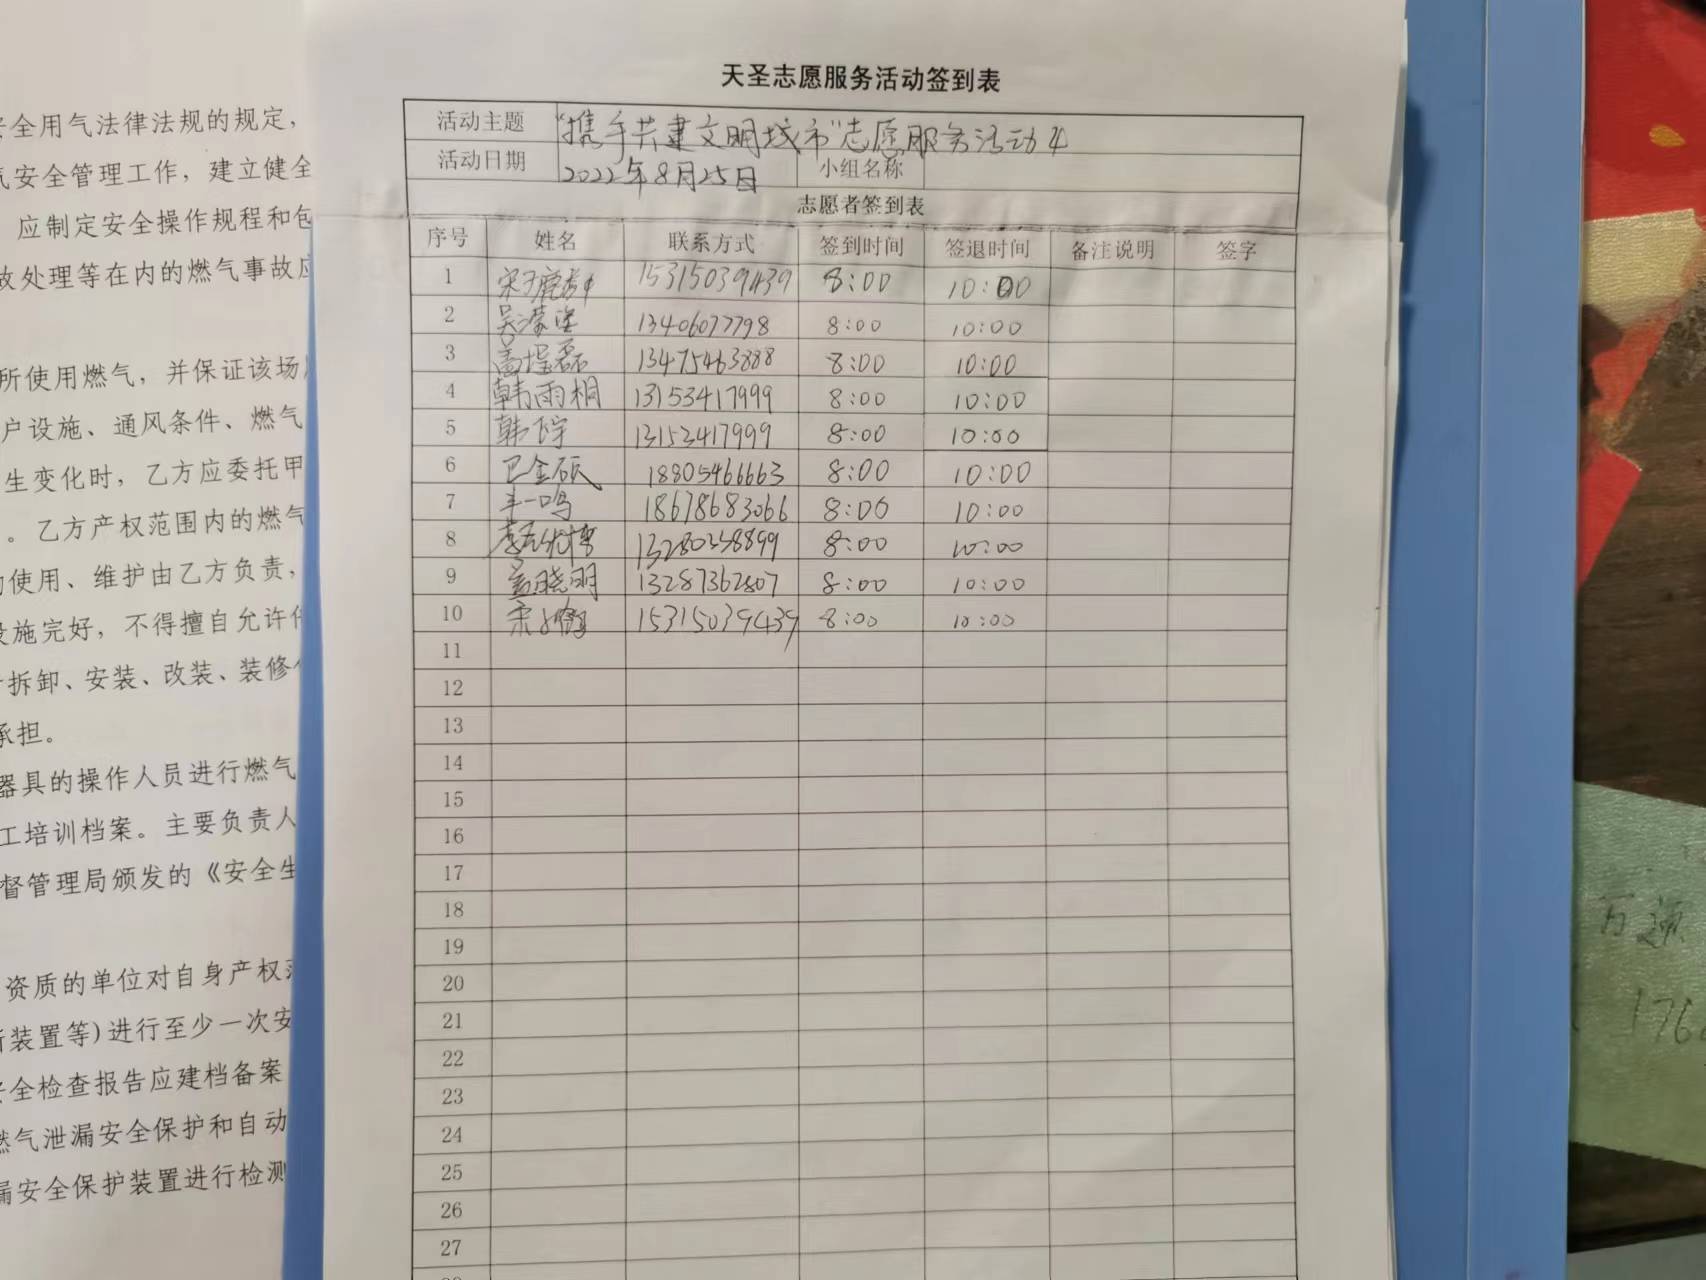 安全用气法律法规的规定，
气安全管理工作，建立健全
应制定安全操作规程和包
故处理等在内的燃气事故应
所使用燃气，并保证该场
户设施、通风条件、燃气
生变化时，乙方应委托甲
。乙方产权范围内的燃气
的使用、维护由乙方负责，
设施完好，不得擅自允许
拆卸、安装、改装、装修
承担。
器具的操作人员进行燃气
工培训档案。主要负责人
督管理局颁发的《安全生
资质的单位对自身产权
装置等)进行至少一次安
安全检查报告应建档备案
燃气泄漏安全保护和自动
漏安全保护装置进行检测
天圣志愿服务活动签到表
活动主题 "携手共建文明城市"志愿服务活动4
活动日期 2022年8月25日 小组名称
志愿者签到表
序号 姓名 联系方式 签到时间 签退时间 备注说明 签字
1 15315039439 8:00 10:00
2 13406077798 8:00 10:00
3 13475463888 8:00 10:00
4 韩雨桐 13153417999 8:00 10:00
5 13153417999 8:00 10:00
6 18805466663 8:00 10:00
7 18678683066 8:00 10:00
8 13280358899 8:00 10:00
9 盖晓明 13287362807 8:00 10:00
10 15315039439 8:00 10:00
11
12
13
14
15
16
17
18
19
20
21
22
23
24
25
26
27